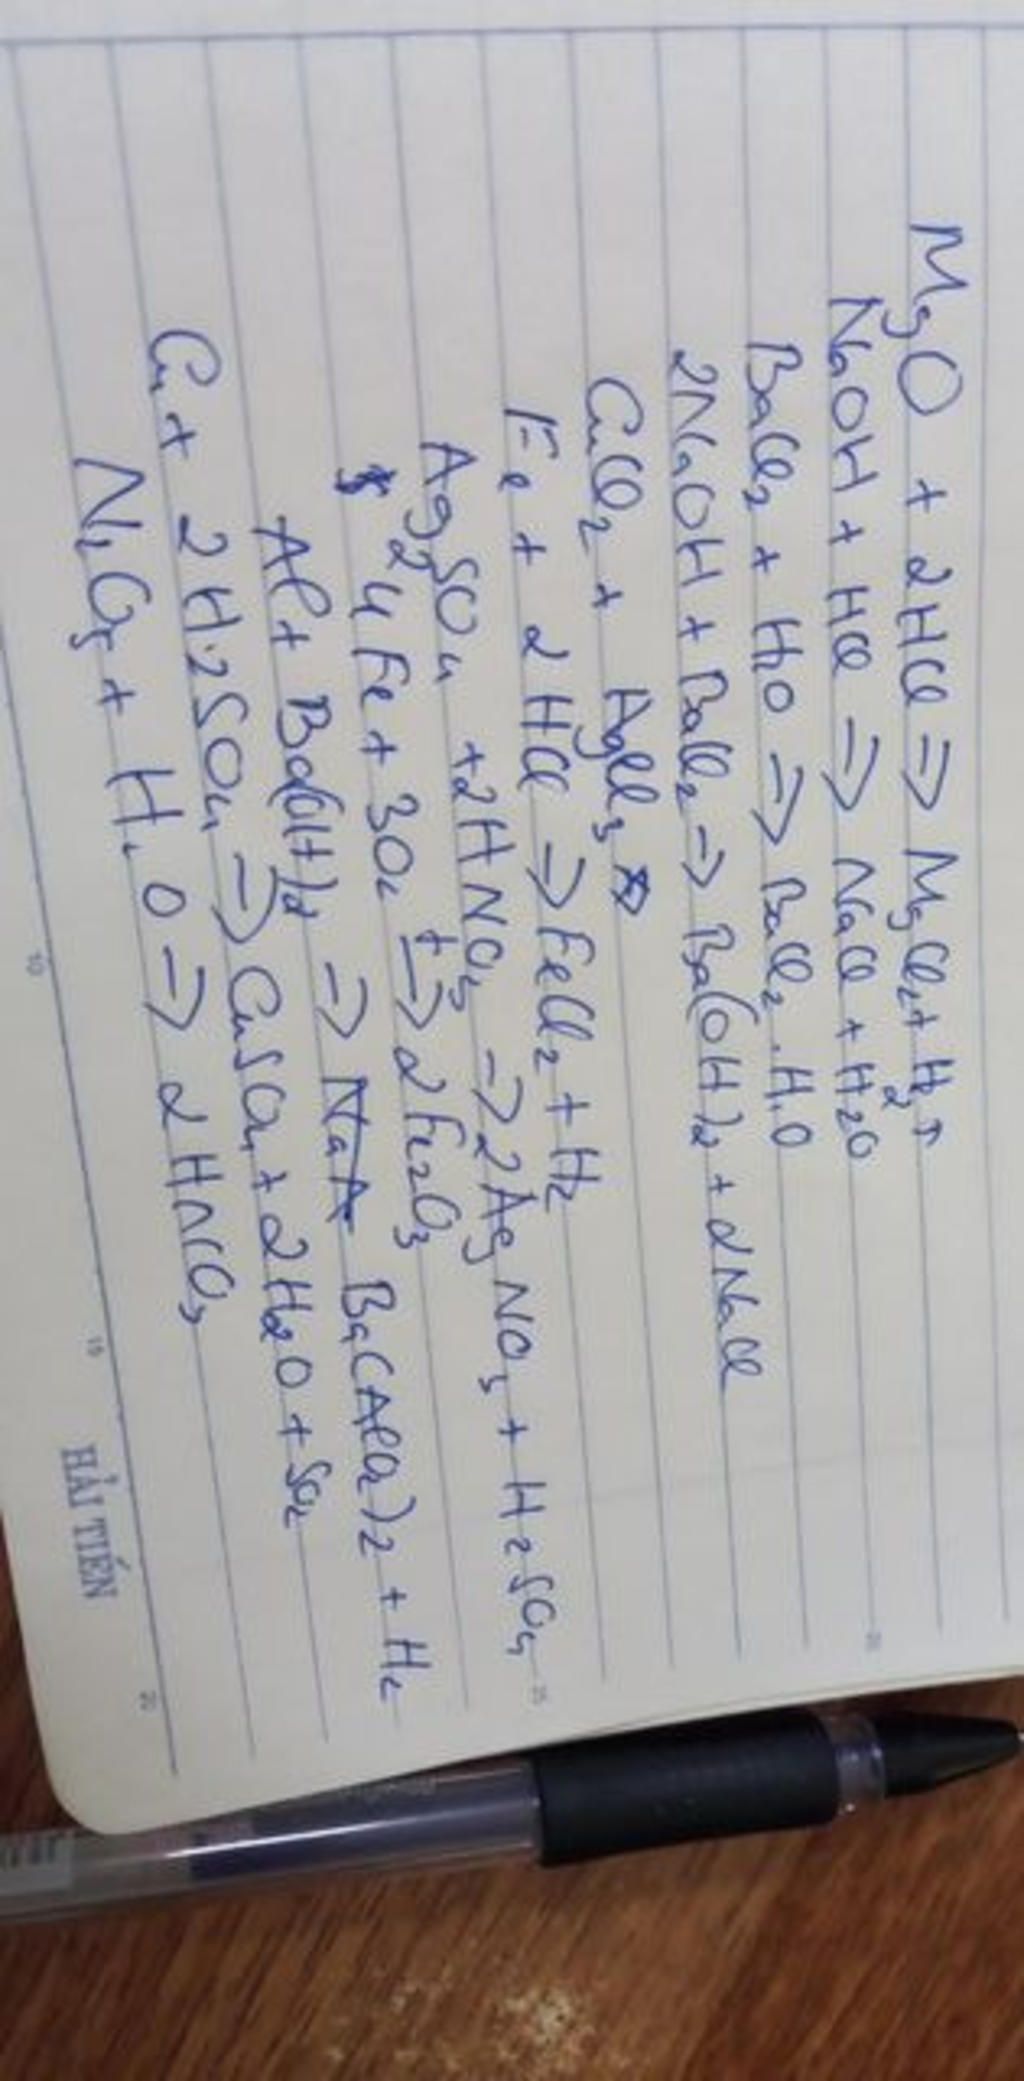 MgO + 2HCl => MgCl2 + H2 ↑
NaOH + HCl => NaCl + H2O
BaCl2 + H2O => BaCl2.H2O
2NaOH + BaCl2 => Ba(OH)2 + 2NaCl
CuCl2 + AgCl3
Fe + 2HCl => FeCl2 + H2
Ag2SO4 + 2HNO3 => 2AgNO3 + H2SO4
4Fe + 3O2 t=> 2Fe2O3
Al + Ba(OH)2 => Ba(AlO2)2 + H2
Cu + 2H2SO4 => CuSO4 + 2H2O + SO2
N2O5 + H2O => 2HNO3
HẢI TIẾN
10
15
20
25
20